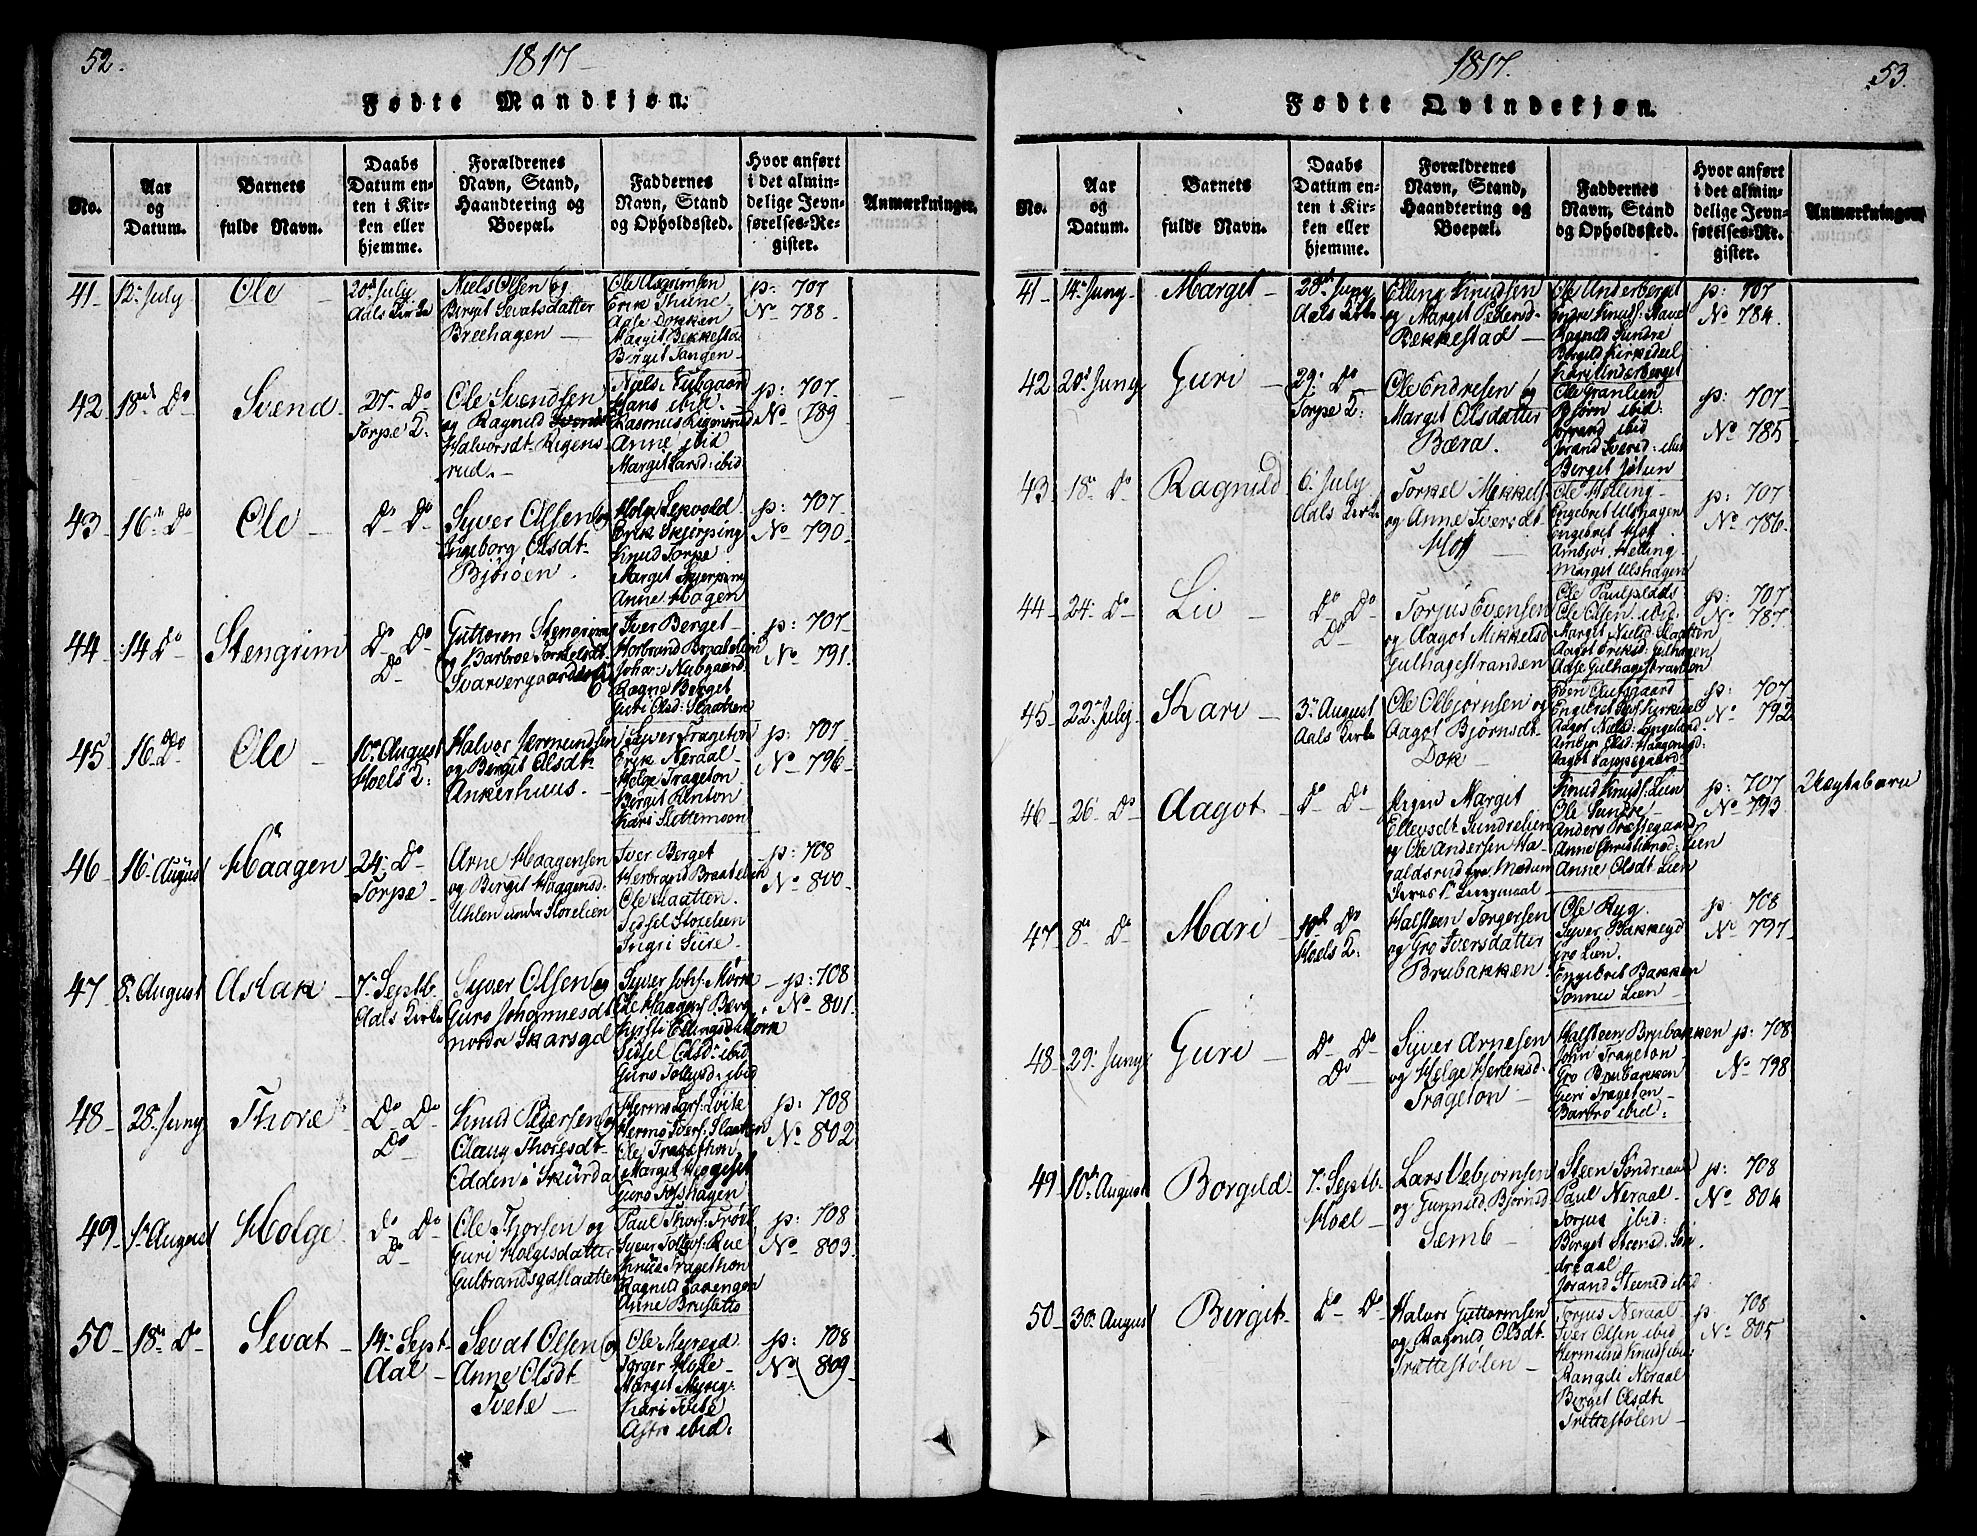 52.
1817
Fødte Mandkjøn.
No.
Aar
og
Datum.
Barnets
fulde Navn.
Daabs
Datum en-
ten i Kir-
ken eller
hjemme.
Forældrenes
Navn, Stand,
Haandtering og
Boepæl.
Faddernes
Navn, Stand
og Opholdssted.
Hvor anført
i det almin-
delige Jevn-
førelses-Re-
gister.
Anmærkninger.
41
12. July
Ole
20d July
Aals Kirke
Niels Olsen og
Birgit Sevatsdatter
Breehagen
Ole Asgrimsen
Erik Thune
Aase Dokken
Margit Bekkestad
Birgit Tangen
p: 707
No 788
42
18de Do
Svend
27. Do
Torpe K:
Ole Svendsen
og Ragnild
Halvorsdt. Rigens
rud.
Niels Nubgaard
Hans ibid.
Rasmus Rigensrud
Anne ibid
Margit Larsd: ibid
p: 707
No 789
43
16. Do
Ole
Do Do
Syver Olsen og
Ingeborg Olsdt.
Bjøröen.
Helge Lexvold
Erik Skjerping
Knud Torpe
Margit Skjerping
Anne Hagen
p: 707
No 790
44
14 Do
Stengrim
Do Do
Do
Guttorm Stengrims
og Barbroe Torkelsdt.
Svarvergaardseie
Iver Berget
Herbrand Braatelien
Johan Nubgaard
Ragne Berget
Guri Olsd: Slaatten
p: 707
No 791
45
16 Do
Ole
10de August
Hoels K:
Halvor Jermundsen
og Bergit Olsdt.
Ankerhuus.
Syver Trageton
Erik Neraal
Helge Trageton
Birget Renton
Kari Slettemoen
p: 707
No 796
46
16. August
Haagen
24. Do
Torpe
Arne Haagensen
og Birgit Haggensd.
Uhlen under Storelien
Iver Berget
Herbrand Braatelien
Ole Slaatten.
Sidsel Storelien
Ingri Siire
p: 708
No 800
47
8. August
Aslak
7. Septb.
Aals Kirke
Syver Olsen og
Guro Johannesdt
nordre Skarsgd
Syver Johs: Mørk
Ole Haagens Berg
Kjersti Ellingsd: Mørk
Sidsel Olsd: ibid
Guro Tollevsd: ibid
p: 708
No 801
48
28. Juny
Thore
Do Do
Do
Knud Pedersen og
Olaug Thoresdt.
Edden i Skurda
Ole Tragethon
Guro Tofshagen
p: 708
No 802
49
1. August
Holge
Do Do
Do
Ole Thorsen og
Guri Holgesdatter
Gulbrandsgdslaatten
Paul Thors: Trøim
Syver Tollevs: Rue
Knud Tragethon
Ragnild Lavengen
Anne Bruseto
p: 708
No 803
50
18. Do
Sevat
14. Sept.
Aal
Sevat Olsen og
Anne Olsdt.
Tvete
Ole Myregd
Torger Hove
Margit Myreg:
Kari Tvete
Astri ibid:
p: 708
No 809
1817.
53.
Fødte Qvindekjøn.
No.
Aar
og
Datum.
Barnets
fulde Navn.
Daabs
Datum en-
ten i Kir-
ken eller
hjemme.
Forældrenes
Navn, Stand,
Haandtering og
Boepæl.
Faddernes
Navn, Stand
og Opholdssted.
Hvor anført
i det almin-
delige Jevn-
førelses-Re-
gister.
Anmærkninger.
41
14. Juny
Marget
20d Juny
Aals Kirke
Elling Knudsen
og Margit Pedersd.
Bekkestad
Ole Underberget
Ragnild Sundre
Borgild Kirkedeil
Kari Underberget
p: 707
No 784
42
20d Juny
Guri
29. Do
Torpe K:
Ole Endresen og
Margit Olsdatter
Bæra.
Ole Granlien
Bjørn ibid
Jorand ibid
Jorand Iversd: ibid
Berget Jøtun
p: 707
No 785
43
18. Do
Ragnild
6. July
Aals Kirke
Torkel Mikkels
og Anne Iversdt.
Hof
Ole Helling
Engebret Ulshagen
Engebret Hof
Ambjør Helling
Marget Ulshagen
p: 707
No 786
44
24. Do
Liv
Do Do
Do
Torjus Evensen
og Aagot Mikkelsd
Gulhagestranden
Ole Olsen ibid:
Marget Nielsd: Slaatten
Aagot Eriksd: Gulhagen
Aase Gulhagestranden
p: 707
No 787
45
22. July
Kari
3. August
Aals Kirke
Ole Olbjørnsen og
Aagot Bjørnsdt.
Dok
p: 707
No 792
46
26. Do
Aagot
Do Do
Pigen Margit
Ellevsdt. Sundrelien
og Ole Andersen Ha
galdsrud fra Modum
Knud Knuds: Lien
Ole Sundre
Anders Præstegaard
Anne Christiansd: Lien
Anne Olsdt Lien
p: 707
No 793
Uægtebarn
47
8. Do
Mari
10de Do
Hoels K:
Halsteen Torgersen
og Gro Iversdatter
Brubakken
Ole Ryg.
Syver Bakkegd
Gro Lien.
Engebret Bakken
Sønnev Lien
p: 708
No 797
48
29. Juny
Guri
Do Do
Do
Syver Arnesen
og Helge Henriksd.
Trageton
Halsteen Brubakken
John Trageton
Gro Brubakken
Guri Trageton
Barbro ibid:
p: 708
No 798
49
10de August
Borgild
7. Septb.
Hoel
Lars Vebjørnsen
og Gunnild Bjørnsd
Semb
Steen Søndreaal
Paul Neraal
Torjus ibid:
Birget Steensd: Søn
dreaal
Jorand Steensd ibid
p: 708
No 804
50
30. August
Berget
Do Do
Halvor Guttormsen
og Ragnild Olsdt.
Trættestølen
Torjus Neraal
Iver Olsen ibid
Hermund Knuds ibid
Rangdi Neraal
Berget Olsdt
Trættestølen
p. 708
No 805